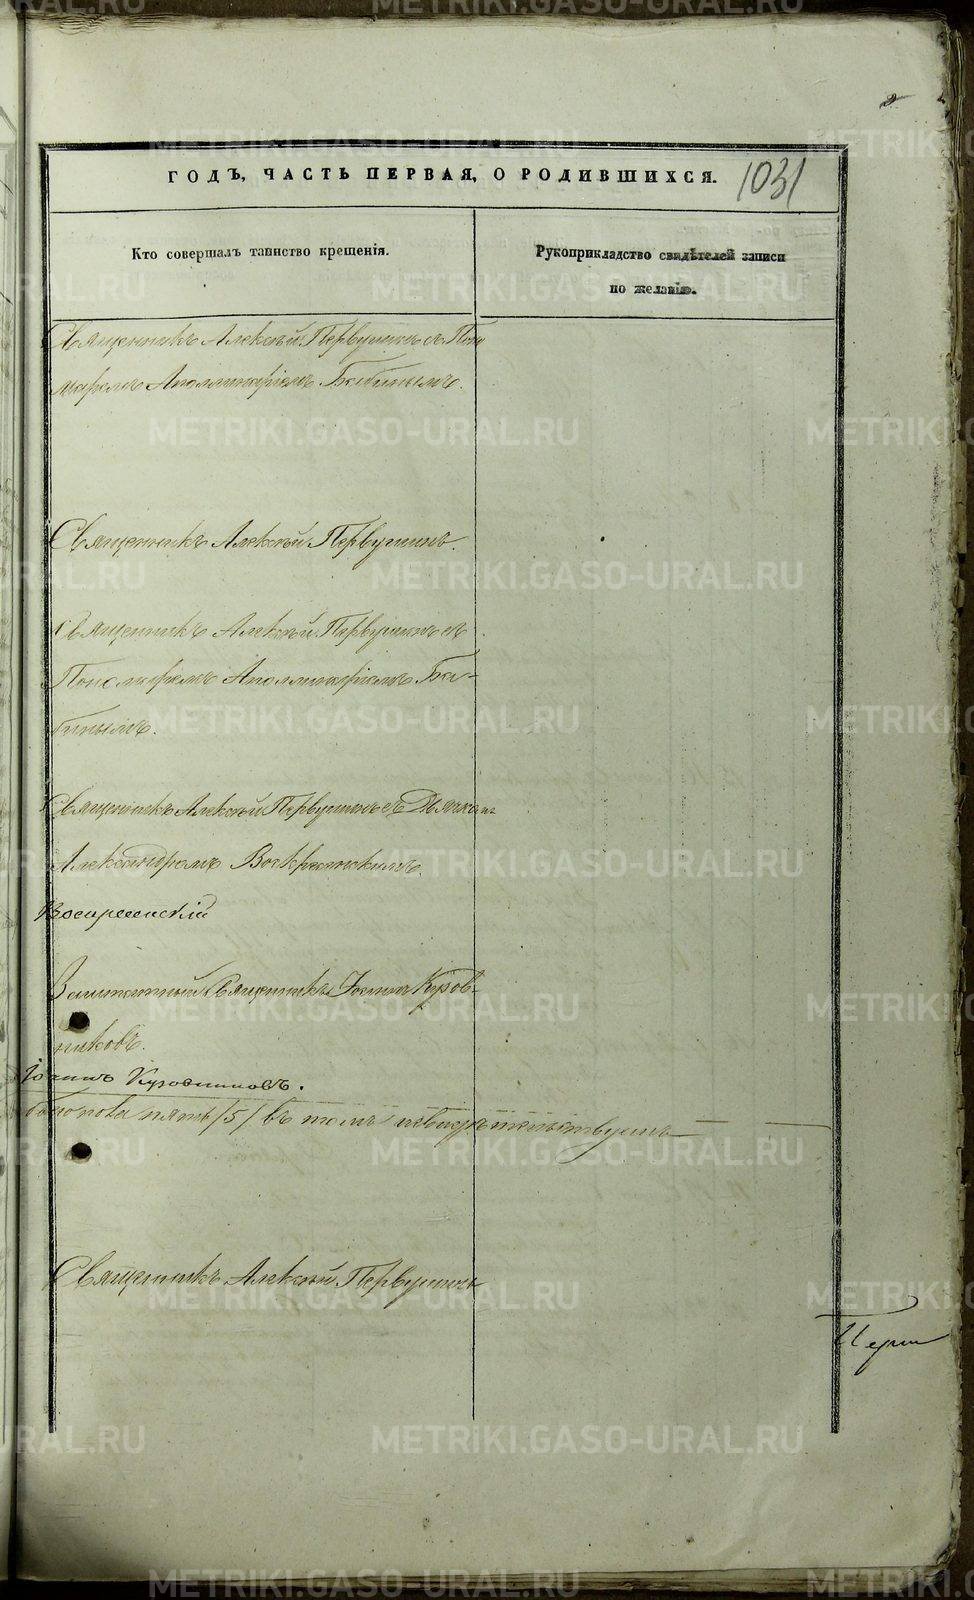 2
ГОДЪ, ЧАСТЬ ПЕРВАЯ, О РОДИВШИХСЯ.
1031
Кто совершалъ таинство крещенія.
Рукоприкладство свидѣтелей записи
по желанію.
Священникъ Алексѣй Первушинъ съ Поно
маремъ Аполлинаріемъ Бабинымъ.
Священникъ Алексѣй Первушинъ.
Священникъ Алексѣй Первушинъ съ
Пономаремъ Аполлинаріемъ Ба-
бинымъ.
Священникъ Алексѣй Первушинъ съ Дьячкомъ
Александромъ Воскресенскимъ.
Воскресенскій
Заштатный Священникъ Іоаннъ Куров-
никовъ.
Іоаннъ Куровниковъ.
пять /5/ въ томъ свидѣтельствуютъ
Священникъ Алексѣй Первушинъ
METRIKI.GASO-URAL.RU